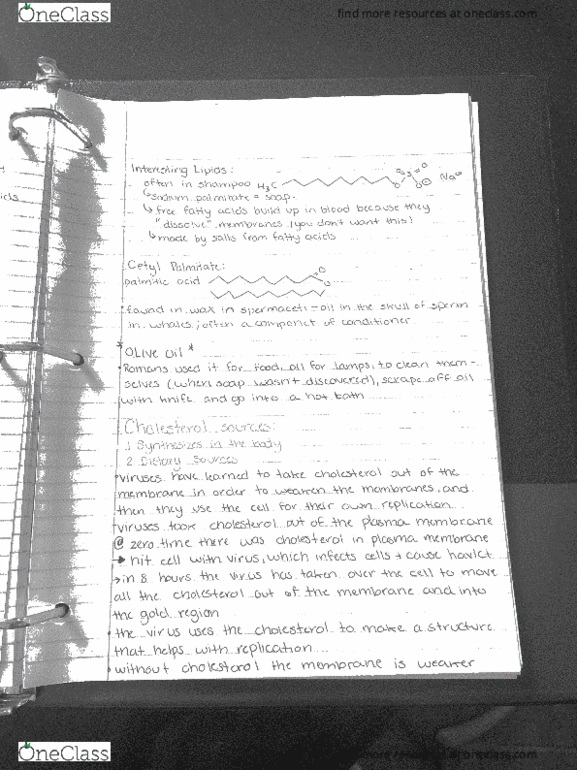 OneClass
find more resources at oneclass.com
Interesting Lipids:
often in shampoo H3C O S O O O Na⊕
↳ sodium palmitate = soap.
↳ free fatty acids build up in blood because they
"dissolve" membranes (you don't want this)
↳ made by salts from fatty acids
Cetyl Palmitate:
palmitic acid O
O
• found in wax in spermaceti = oil in the skull of sperm
in whales; often a componet of conditioner
* OLIVE Oil *
• Romans used it for food, oil for lamps, to clean them-
selves (when soap wasn't discovered), scrape off oil
with knife and go into a hot bath
Cholesterol sources:
1. Synthesizes in the body
2. Dietary sources
• viruses have learned to take cholesterol out of the
membrane in order to weaken the membranes, and
then they use the cell for their own replication
• viruses took cholesterol out of the plasma membrane
@ zero time there was cholesterol in plasma membrane
→ hit cell with virus, which infects cells + cause
→ in 8 hours the virus has taken over the cell to move
all the cholesterol out of the membrane and into
the gold region
• the virus uses the cholesterol to make a structure
that helps with replication...
• without cholesterol the membrane is weaker
OneClass
find more resources at oneclass.com